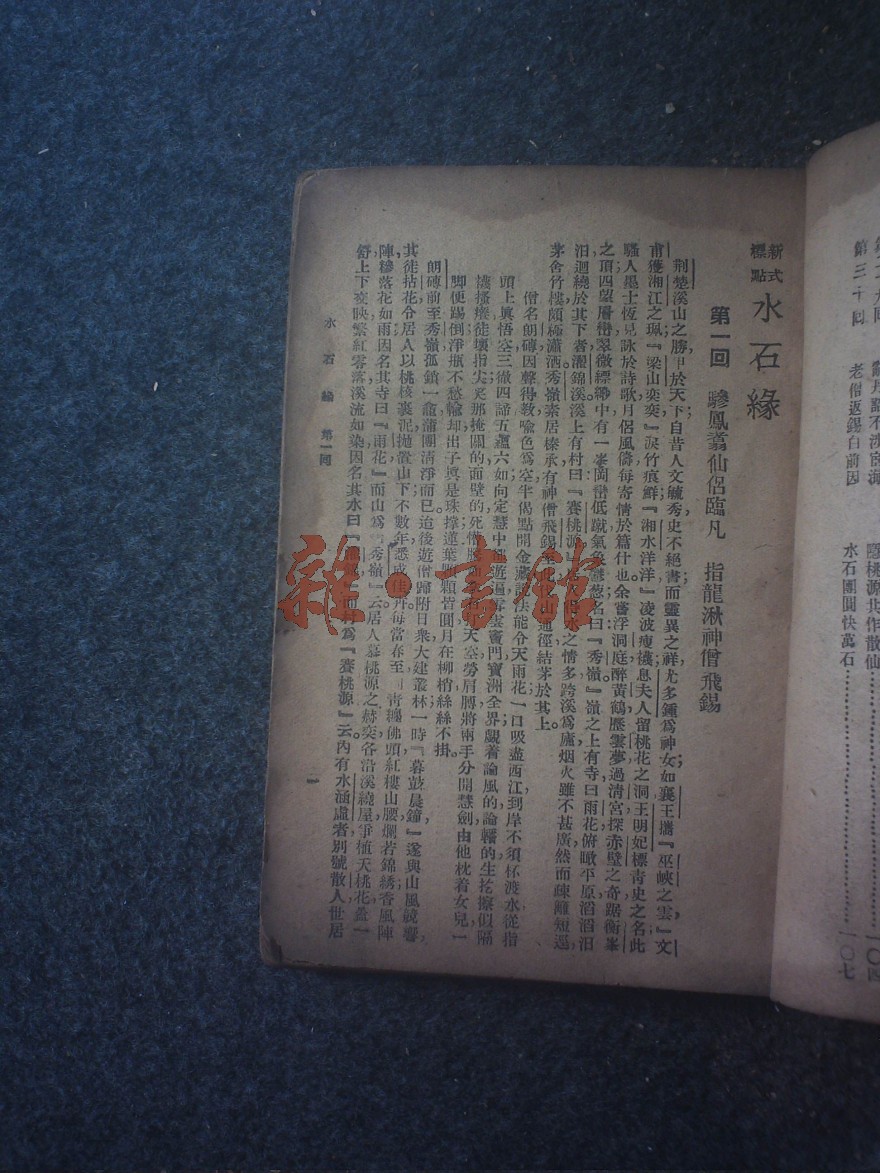 新式標點 水石緣
第一回 驂鳳翥仙侶臨凡 指龍湫神僧飛錫
荆楚溪山之勝甲於天下自昔人文毓秀史不絕書而靈異之祥尤多鍾爲神女如襄王攜『巫峽之雲』文
甫獲湘江之珮『梁山奕奕』淚竹痕鮮『湘水洋洋』凌波瘦襪息夫人留桃花之洞王明妃標靑史之名此
騷人墨士恆見詠於詩歌月侶風儔每寄情於篇什也余嘗浮洞庭醉黃鶴歷雲夢過清宮探赤壁之奇踞衡峯
之頂四望層巒翠微縹緲中有一峯岡巒低蹴氣象鬱葱名曰『秀嶺』嶺之上有寺曰雨花俯瞰平原滔滔汨
汨迴繞於其下者濯錦溪溪上有村曰『賽桃源』水之情多跨溪爲廬烟火雖不甚廣然而疎籬短逕
茅舍竹樓頗極瀟洒秀嶺素居榛承有神僧飛錫山通徑結茅於其上
僧名朗磚因聲得教喩色爲空半偈點開金藏說法能令天雨花一口吸盡西江到岸不須杯渡水從指
頭上眞悟空三徹四諦五蘊六如向定慧中遊遍香雲竇門寶洲全界覷着論風的論轓的生扢擦似隔
韈搔癢徒壤指尖笑那掩關的面壁的死憎天空勞肩膊將兩手分開慧劍由他枕着女兒一
脚便踢倒淨瓶不愁輸却出子眞是珠撐蓮葉顆顆皆圓月在柳梢絲絲不掛
朗磚前至秀嶺孤鎖一龕蒲團清淨而已迨後遊僧歸附日衆大建叢林一時『暮鼓晨鐘』遂與山風競響
其徒拈花令居人以桃核裹泥拋置山下不數年悉成佳卉每當春至靑纏佛頭紅樓山腰爛若錦綉香風陣
陣糝落花如雨因名其寺曰『雨花』而山爲『秀嶺』云居人慕桃源之赫奕各沿溪繞屋爭植夭桃花叢一
舒上下交映繁紅零落溪流如染因名其水曰而村爲『賽桃源』云內有水涵虛者別號散人世居
水石緣 第一回
一
第三十回 老僧返錫白前因 水石團圓快萬石 一〇七
隱桃源共作散仙 一〇四